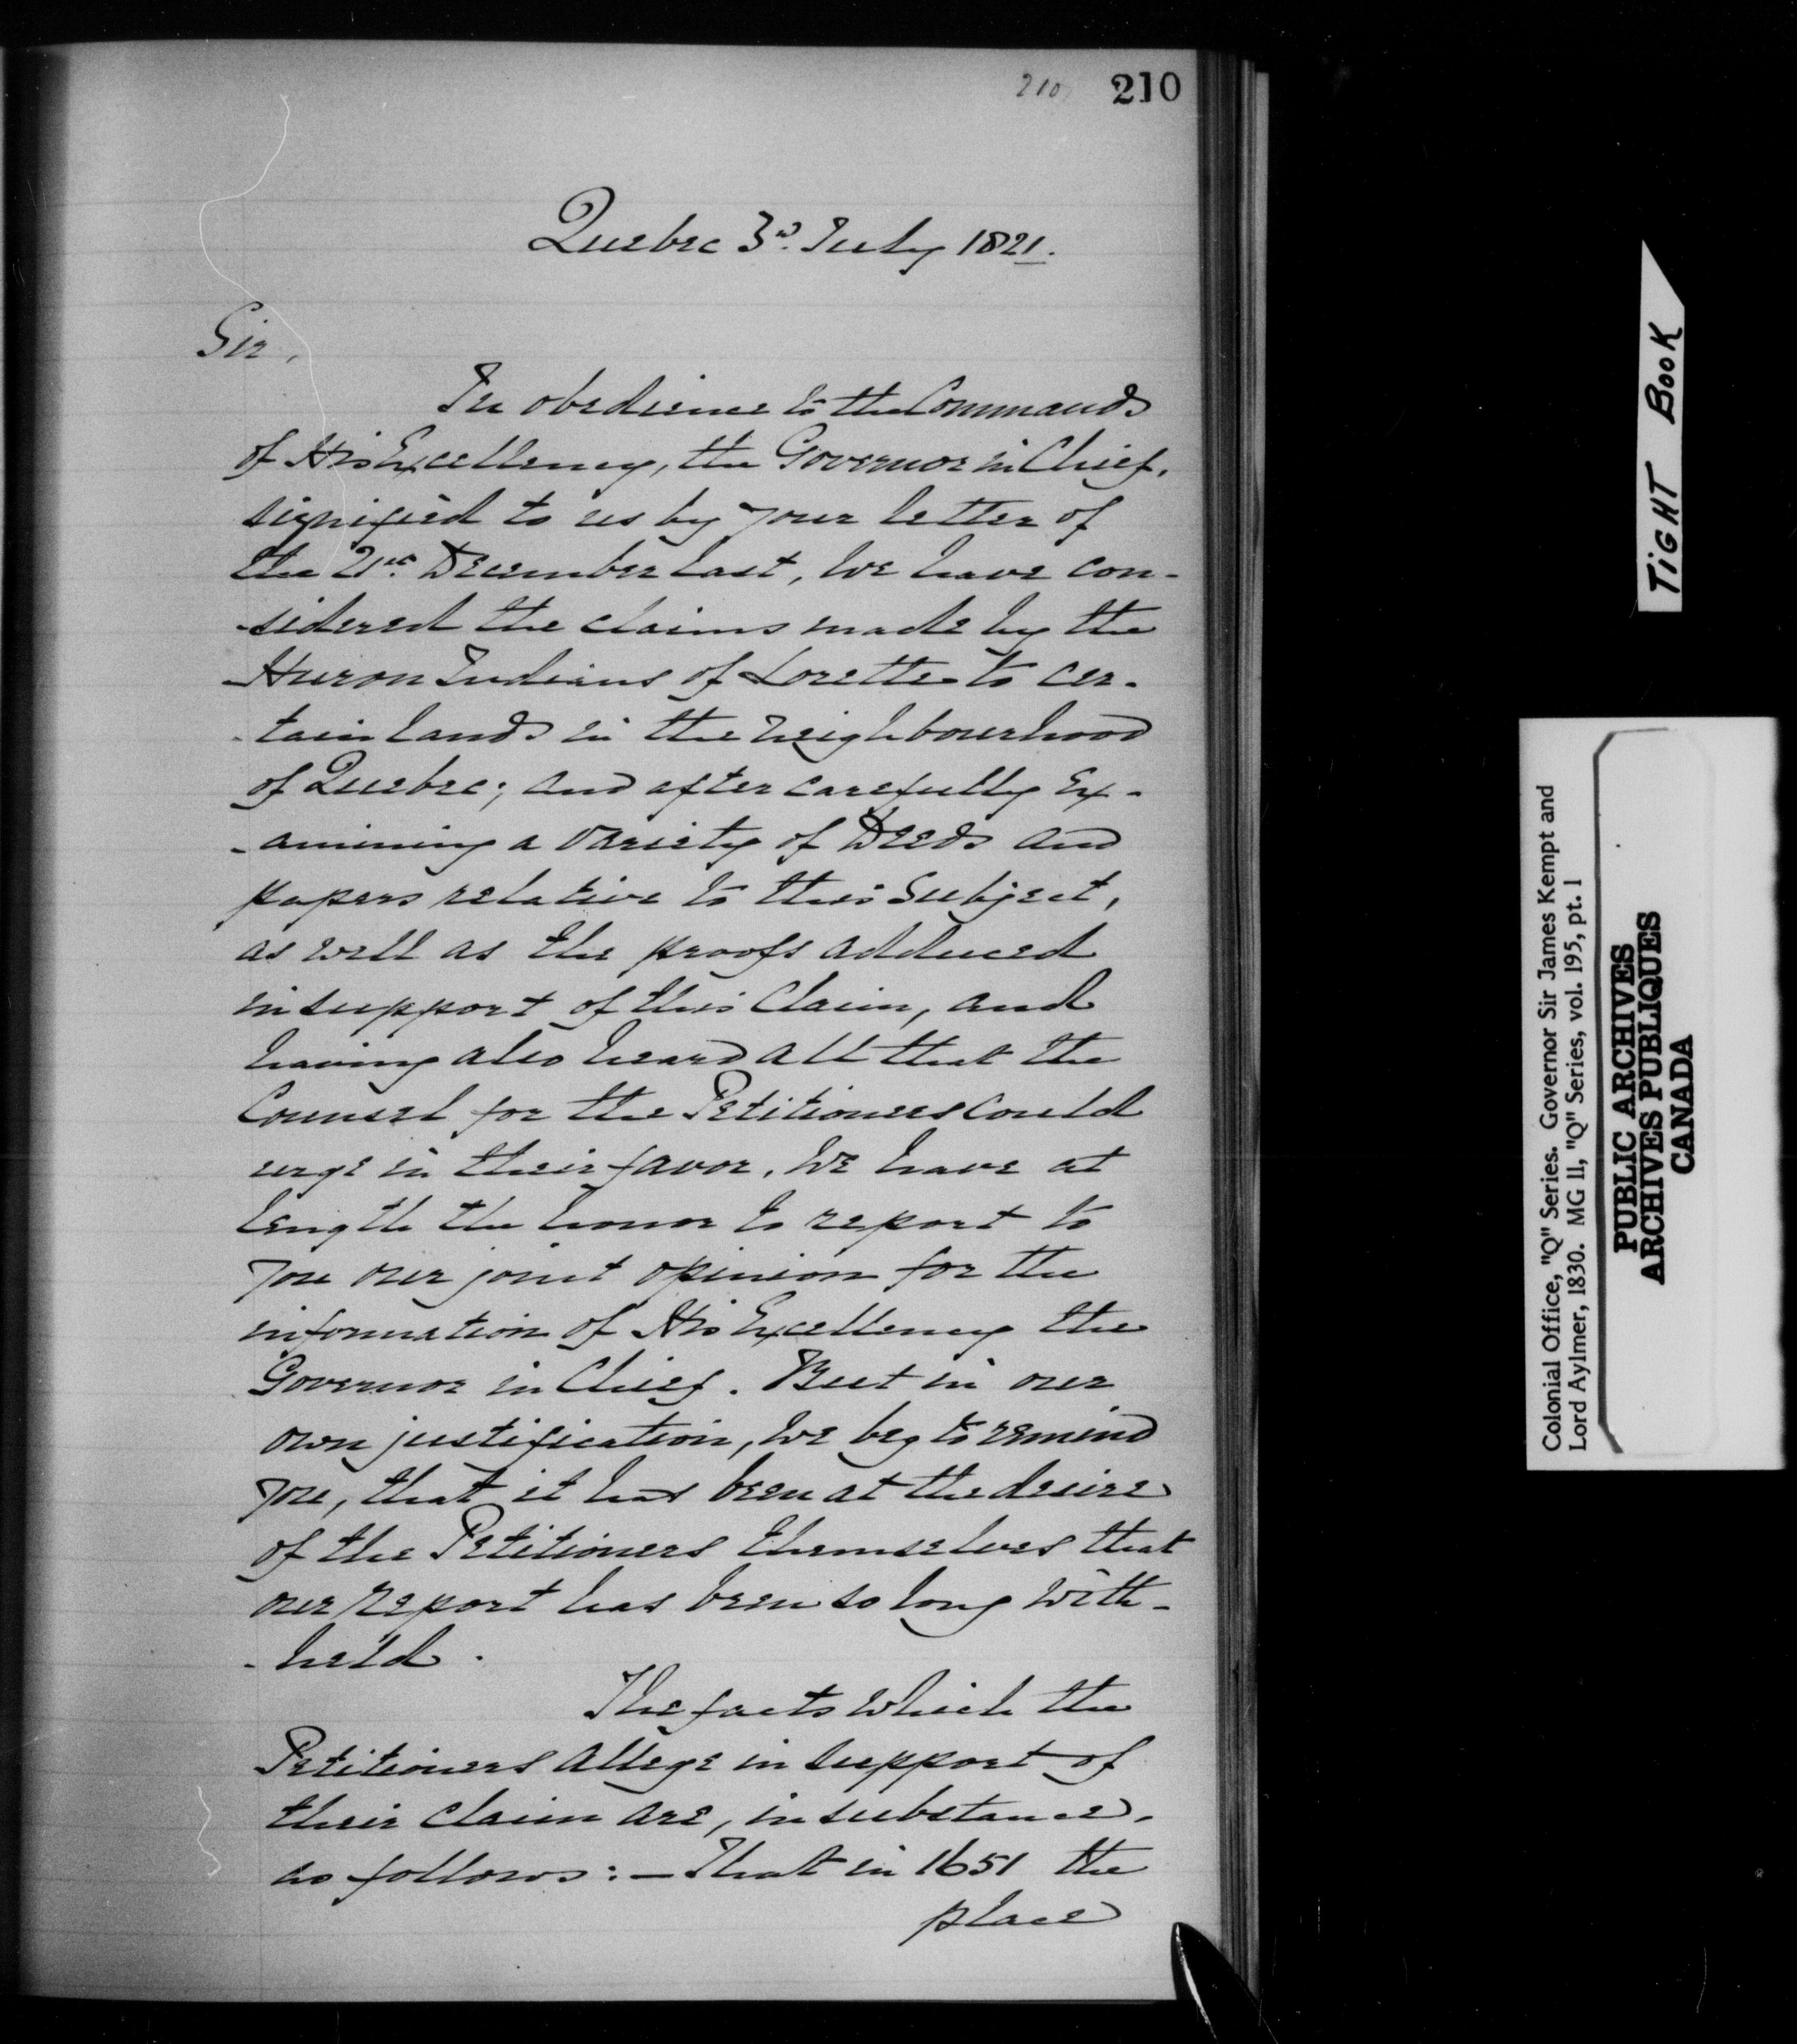 210 210
Quebec 3d. July 1821.
Sir,
In obedience to the Commands
of His Excellency, the Governor in Chief,
signified to us by your letter of
the 21st December last, we have con-
-sidered the claims made by the
Huron Indians of Lorette to cer-
-tain lands in the neighbourhood
of Quebec; and after carefully Ex-
-amining a variety of Deeds and
papers relative to this Subject,
as well as the proofs adduced
in support of this Claim, and
having also heard all that the
Counsel for the Petitioners could
urge in their favor, we have at
length the honor to report to
you our joint opinion for the
information of His Excellency the
Governor in Chief. But in our
own justification, we beg to remind
you, that it has been at the desire
of the Petitioners themselves that
our report has been so long with-
-held.
The facts which the
Petitioners allege in support of
their claim are, in substance,
as follows:— That in 1651 the
place
TIGHT BOOK
Colonial Office, "Q" Series. Governor Sir James Kempt and
Lord Aylmer, 1830. MG 11, "Q" Series, vol. 195, pt. 1
PUBLIC ARCHIVES
ARCHIVES PUBLIQUES
CANADA